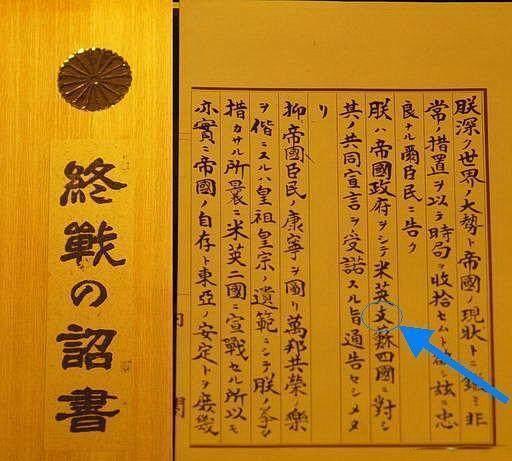 終戰の詔書
朕深ク世界ノ大勢ト帝國ノ現狀トニ鑑ミ非
常ノ措置ヲ以テ時局ヲ收拾セムト欲シ茲ニ忠
良ナル爾臣民ニ告ク
朕ハ帝國政府ヲシテ米英支蘇四國ニ對シ
其ノ共同宣言ヲ受諾スル旨通告セシメタ
リ
抑帝國臣民ノ康寧ヲ圖リ萬邦共榮ノ樂
ヲ偕ニスルハ皇祖皇宗ノ遺範ニシテ朕ノ拳々
措カサル所曩ニ米英二國ニ宣戰セル所以モ
亦實ニ帝國ノ自存ト東亞ノ安定トヲ庶幾